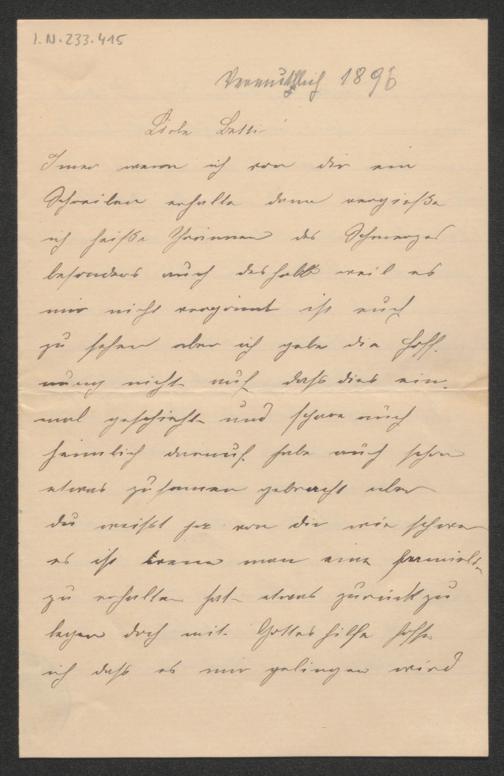 I.N. 233.415
Vermuthlich 1896
Liebe Betti
Imer wenn ich von dir ein
Schreiben erhalte dann vergieße
ich heiße Thrännen des Schmerzes
besonders auch deshalb weil es
mir nicht vergönnt ist euch
zu sehen aber ich gebe die Hoff¬
nung nicht auf daß dies ein¬
mal geschieht und spare auch
heimlich darauf habe auch schon
etwas zusamen gebracht aber
du weißt ja von dir wie schwer
es ist wenn man eine Familie
zu erhalten hat etwas zurückzu
legen doch mit Gottes hilfe hoffe
ich daß es mir gelingen wird